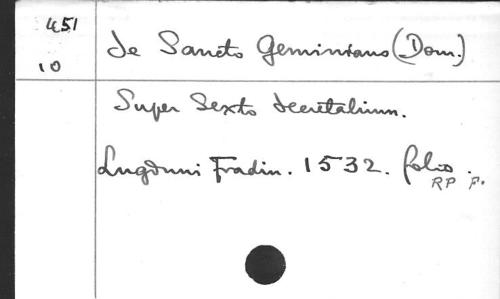 451
10
de Sancto Geminiano (Dom.)
Super Sexto decretalium.
Lugduni Fradin. 1532. folio.
RP P.